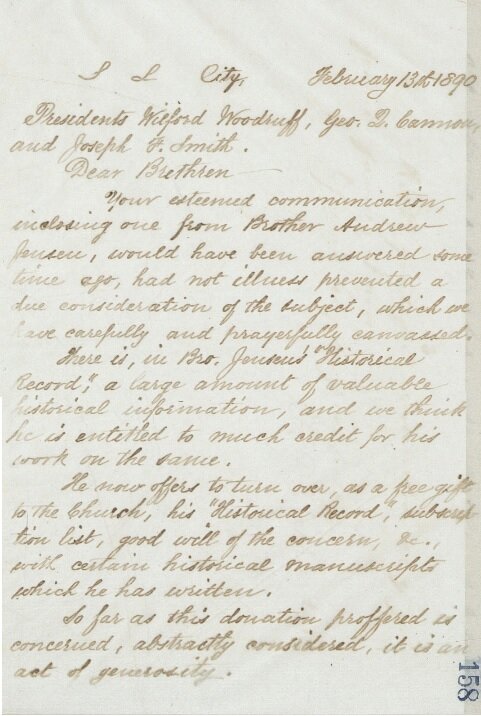 S L City, February 13th 1890
Presidents Wilford Woodruff, Geo. Q. Cannon,
and Joseph F. Smith.
Dear Brethren
Your esteemed communication,
inclosing one from Brother Andrew
Jensen, would have been answered some
time ago, had not illness prevented a
due consideration of the subject, which we
have carefully and prayerfully canvassed.
There is, in Bro. Jensens' "Historical
Record", a large amount of valuable
historical information, and we think
he is entitled to much credit for his
work on the same.
He now offers to turn over, as a free gift
to the Church, his "Historical Record", subscrip
tion list, good will of the concern, &c.,
with certain historical manuscripts
which he has written.
So far as this donation proffered is
concerned, abstractly considered, it is an
act of generosity.
158